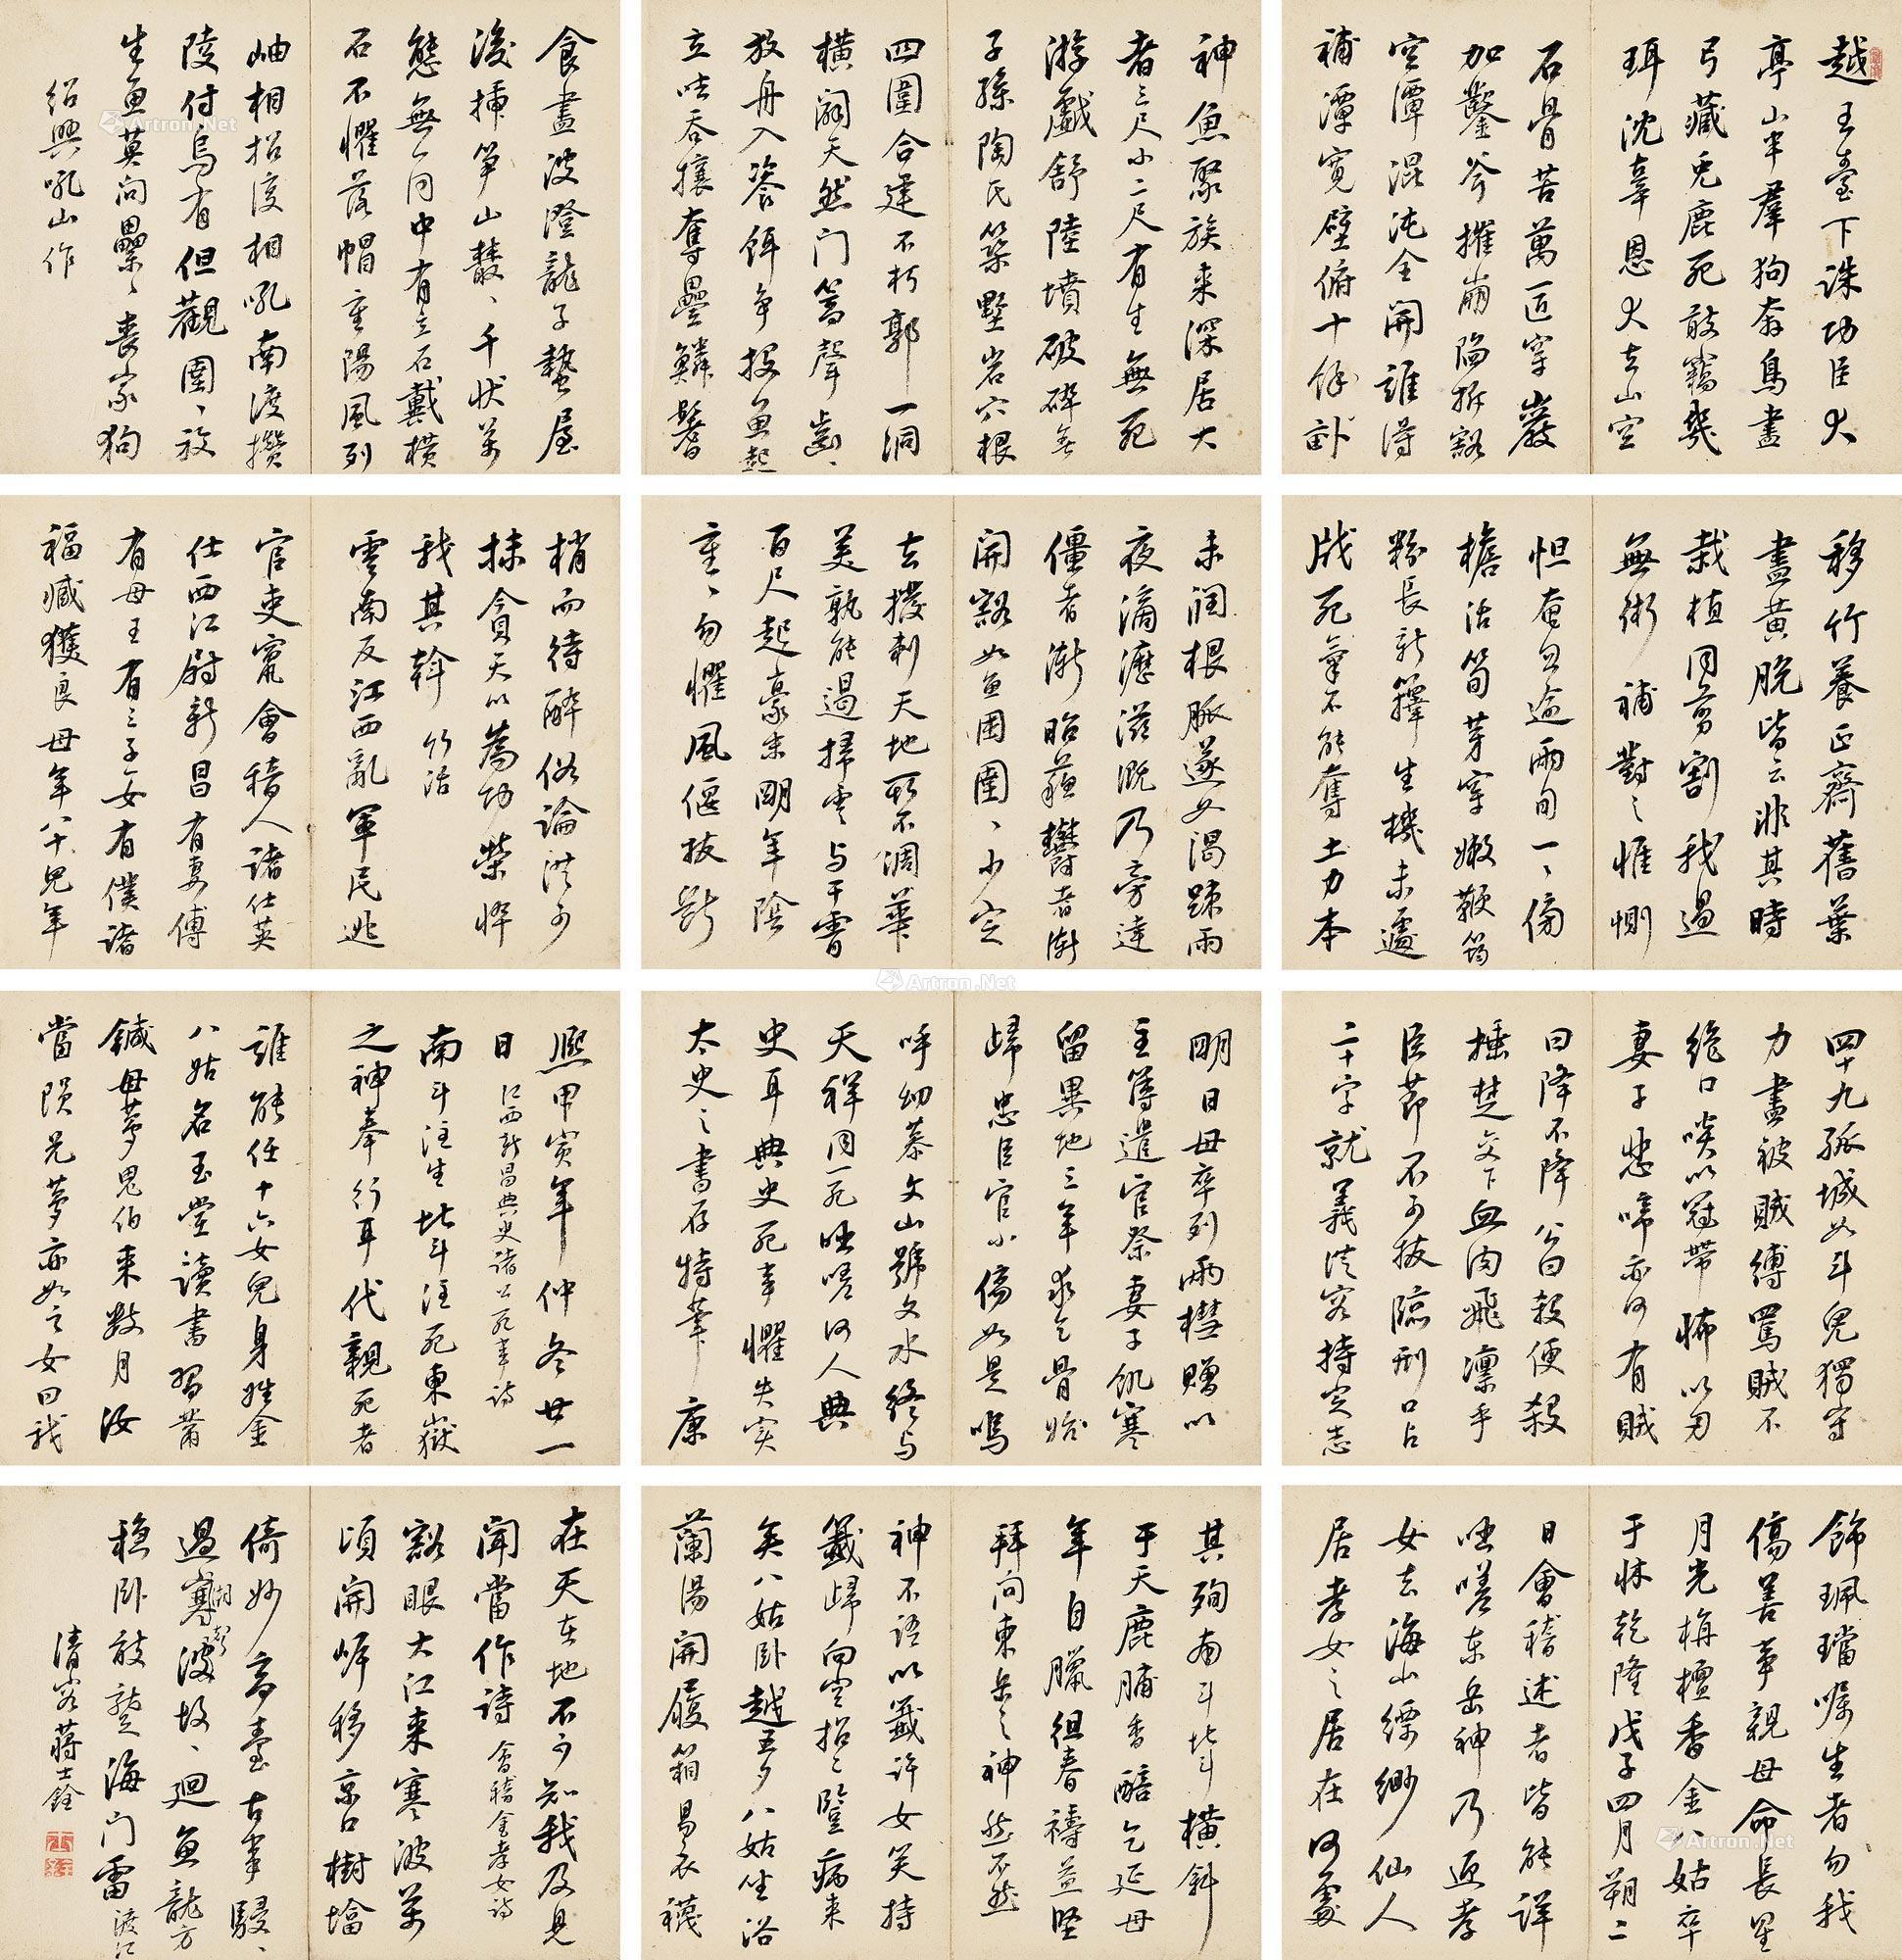 越王臺下誅功臣犬
亭山半群狗奔鳥盡
弓藏兔鹿死敲竊幾
珥沈辜恩犬去山空
石骨苦萬匠穿巖
加鑿斧摧崩陷拆豁
空潭混沌全開誰得
補潭寬壁俯十餘畝
神魚聚族来深居大
者三尺小二尺有生無死
游戲舒陸墳破碎無
子孫陶氏築墅岩穴根
四圍合建不朽郭一洞
橫開天然门篙聲齒〻
放舟入瓷餌争投魚起
立呿吞攘奪疊鱗鬐
食盡波澄龍子蟄屋
後插筍山叢〻千狀萬
態無一同中有立石戴橫
石不懼落帽重陽風列
岫相招復相吼南渡攢
陵付烏有但觀圉〻放
生魚莫向纍〻喪家狗
紹興吼山作
移竹養正齋舊葉
盡黄脫皆云非其時
栽植同剪割我過
無術補對之惟惻
怛奄忽逾兩旬一〻傍
檐活筍芽穿嫩鞭筠
粉長新籜生機未遽
戕死氣不能奪土力本
未润根脈遂如渴疎雨
夜滴瀝滋溉乃旁達
僵者漸昭蘇鬱者漸
開豁如魚圉圉〻少定
去撥剌天地所不凋華
美孰能遏掃雲与干霄
百尺起豪末明年陰
重〻勿懼風偃拔斷
梢而待醉俗論洪可
抹貪天以為功榮悴
我其斡 竹活
雲南反江西亂軍民逃
官吏竄會稽人諸仕英
仕西江尉新昌有妻傅
有母王有三子女有僕諸
福臧獲良母年八十兒年
四十九孤城如斗兒獨守
力盡被賊縛罵賊不
絕口啖以冠帶怖以刃
妻子悲啼亦何有賊
曰降不降公曰殺便殺
捶楚交下血肉飛凛乎
臣節不可拔臨刑口占
二十字就義從容持定志
明日母卒列兩槥贈以
主簿遣官祭妻子飢寒
留異地三年求乞骨始
歸忠臣官小傷如是嗚
呼幼慕文山號文水終与
天祥同一死吁嗟何人典
史耳典史死事懼失實
太史之書存特筆 康
熙甲寅年仲冬廿一
日 江西新昌典史諸公死事詩
南斗注生北斗注死東嶽
之神奉行耳代親死者
誰能任十六女兒身姓金
八姑名玉堂讀書習黹
鍼母夢鬼伯来數月汝
當隕兄夢亦如之女曰我
飾珮璫囑生者勿我
傷善事親母命長星
月光栴檀香金八姑卒
于牀乾隆戊子四月朔二
日會稽述者皆能詳
吁嗟東岳神乃迎孝
女去海山縹緲仙人
居孝女之居在何處
其殉南斗北斗橫斜
于天鹿脯香醅乞延母
年自臘徂春禱益堅
拜向東岳之神然不然
神不語以籤許女笑持
籤歸向空招〻豎病来
矣八姑卧越五夕八姑坐浴
蘭湯開履箱易衣襪
在天在地不可知我及見
聞當作詩 會稽金孝女詩
豁眼大江来寒波萬
頃開岸移京口樹塔
倚妙高臺古事駸〻
過寒波故〻迴魚龍方
穩卧敲 海门雷 渡江
清容蔣士銓